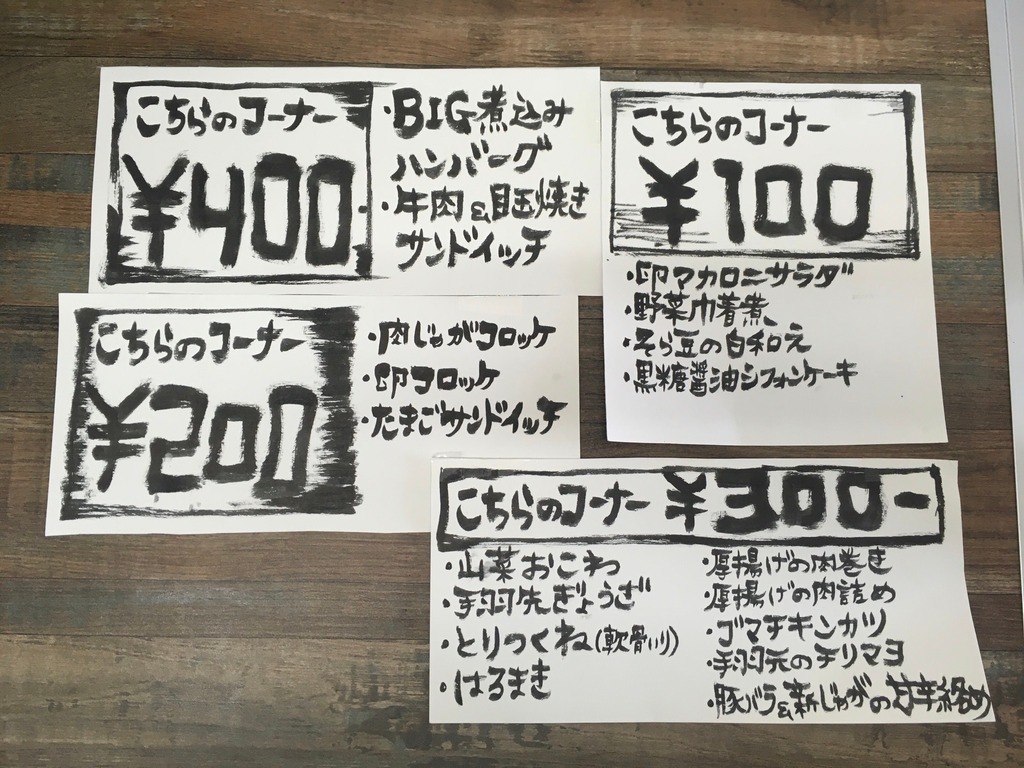 こちらのコーナー
¥400
・BIG煮込み
ハンバーグ
・牛肉&目玉焼き
サンドイッチ
こちらのコーナー
¥100
・卯マカロニサラダ
・野菜巾着煮
・そら豆の白和え
・黒糖醬油シフォンケーキ
こちらのコーナー
¥200
・肉じゃがコロッケ
・卯コロッケ
・たまごサンドイッチ
こちらのコーナー ¥300-
・山菜おこわ
・手羽先ぎょうざ
・とりつくね(軟骨入り)
・はるまき
・厚揚げの肉巻き
・厚揚げの肉詰め
・ゴマチキンカツ
・手羽元のチリマヨ
・豚バラ&新じゃがの甘辛絡め